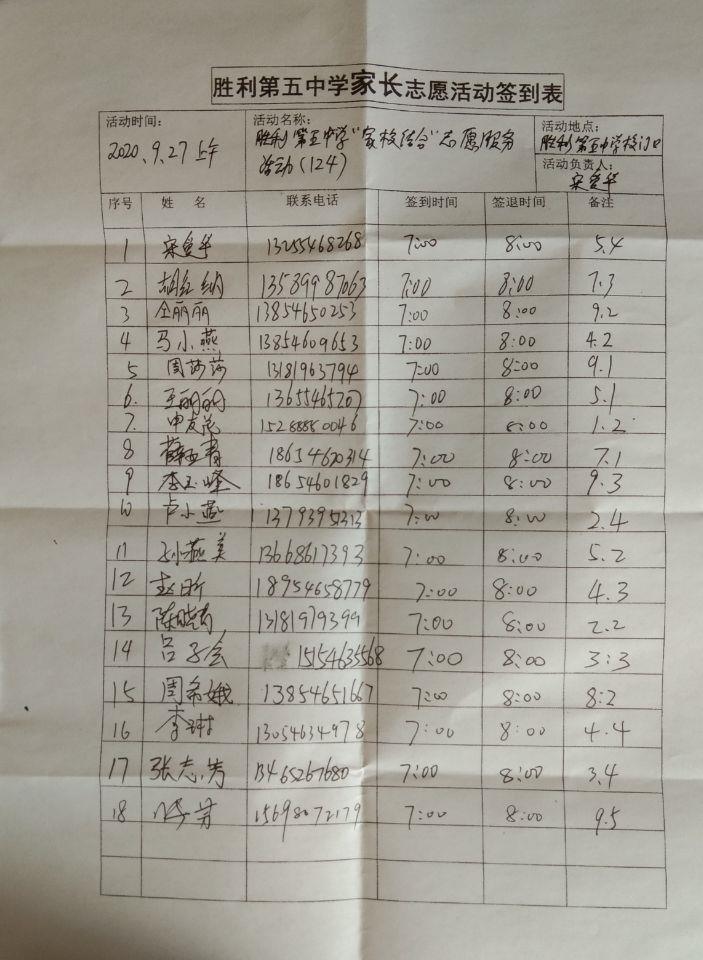 胜利第五中学家长志愿活动签到表
活动时间： 活动名称： 活动地点：
2020.9.27上午 胜利第五中学"家校结合"志愿服务 胜利第五中学校门口
活动(124) 活动负责人：
宋爱华
序号 姓 名 联系电话 签到时间 签退时间 备注
1 宋爱华 13255468268 7:00 8:00 5.4
2 胡红纳 13589987063 7:00 8:00 7.3
3 仝丽丽 13854650253 7:00 8:00 9.2
4 马小燕 13854609653 7:00 8:00 4.2
5 周莎莎 13181963794 7:00 8:00 9.1
6. 王丽丽 7:00 8:00 5.1
7. 申友花 15288880046 7:00 8:00 1.2
8 18654620314 7:00 8:00 7.1
9 李玉峰 18654601829 7:00 8:00 9.3
10 卢小燕 7:00 8:00 2.4
11 孙燕美 13668617393 7:00 8:00 5.2
12 赵昕 18954658779 7:00 8:00 4.3
13 13181979399 7:00 8:00 2.2
14 吕子会 15154635568 7:00 8:00 3:3
15 周希娥 13854651667 7:00 8:00 8:2
16 李琳 13054634978 7:00 8:00 4.4
17 张志芳 13465267680 7:00 8:00 3.4
18 15698072179 7:00 8:00 9.5